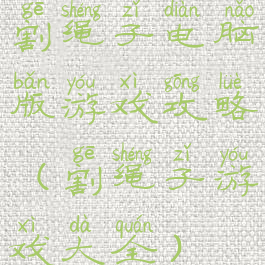 gē shéng zǐ diàn nǎo
割绳子电脑
bǎn yóu xì gōng lüè
版游戏攻略
gē shéng zǐ yóu
（割绳子游
xì dà quán
戏大全）